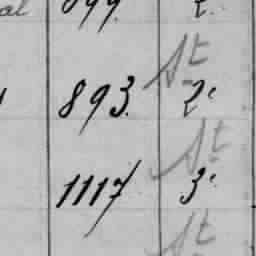 al 899. 2.
St
893. 2.
St
1117 3.
St